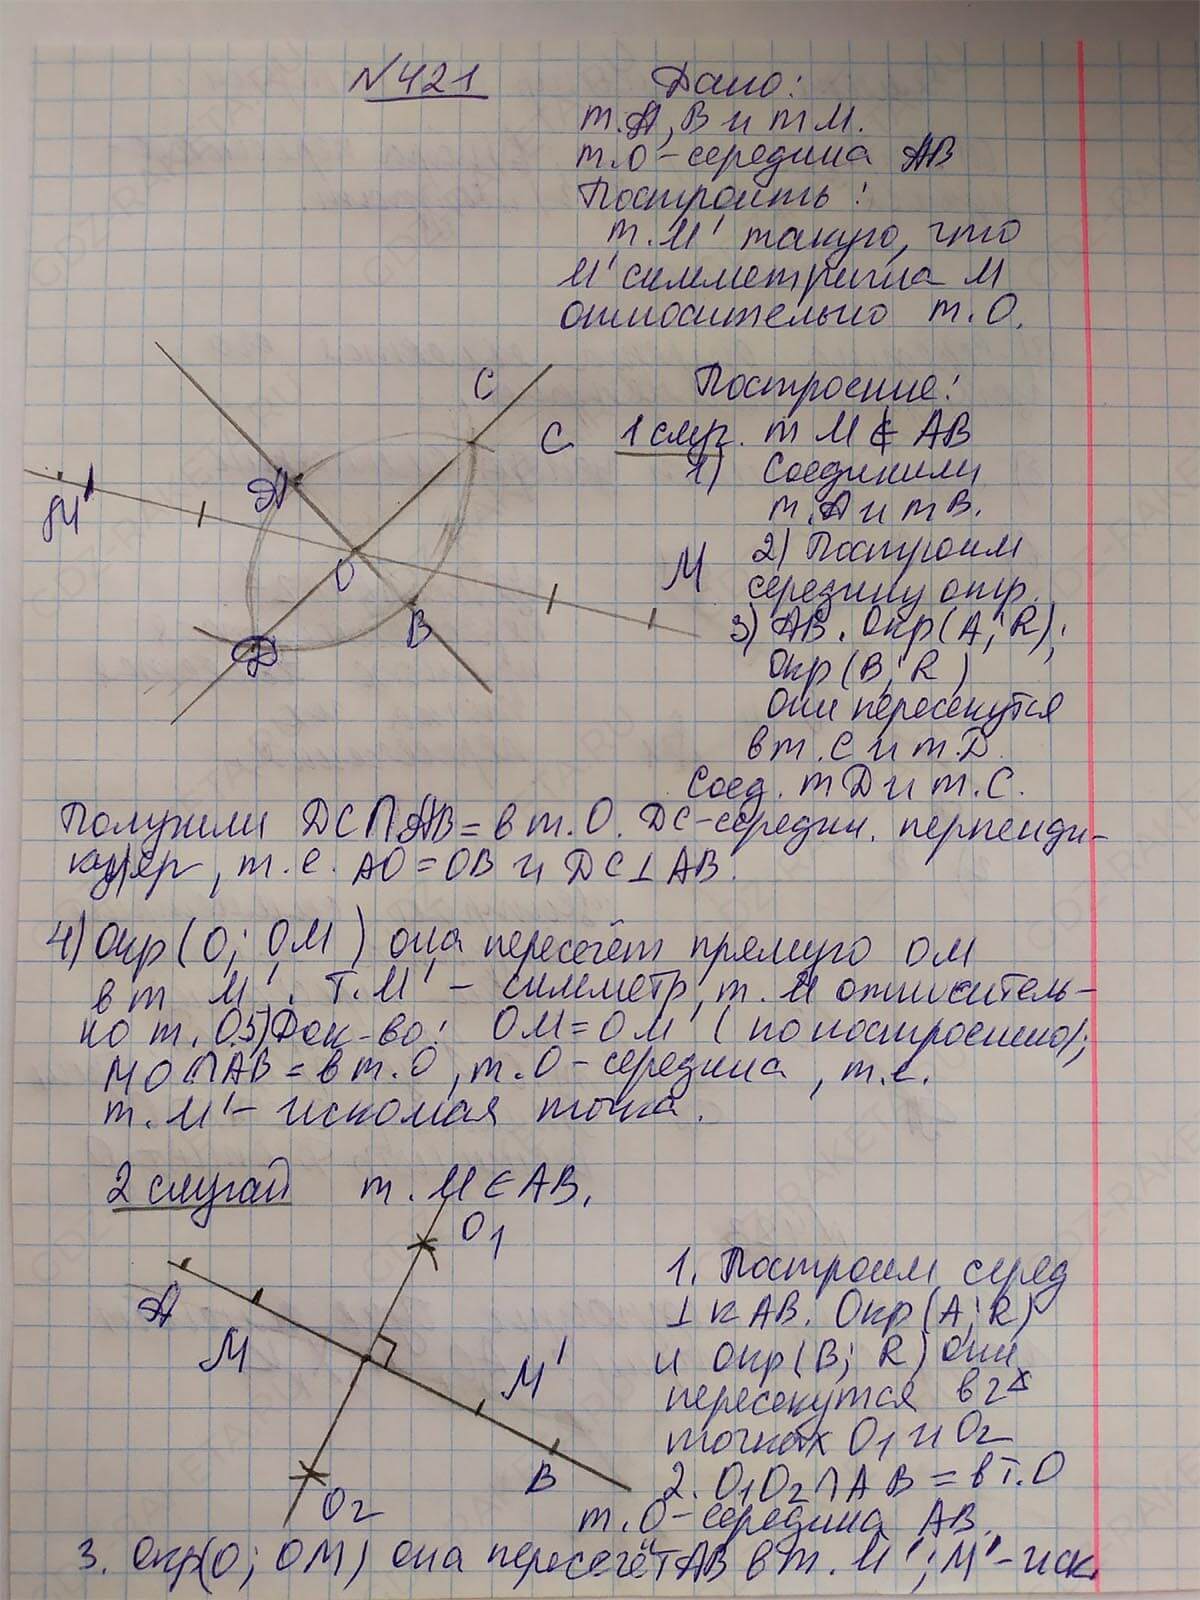 №421
Дано:
т.А, В и т М.
т.О - середина АВ
Построить:
т.М' такую, что
М' симметрична М
относительно т.О.
Построение:
1 случ. т М ∉ АВ
1) Соединили
т.А и т В.
2) Построим
середину отр.
3) АВ. Окр(А; R);
Окр(В; R)
Они пересекутся
в т.С и т.Д.
Соед. т Д и т.С.
С
С
А
М'
О
М
В
Д
Получили ДС∩АВ = в т.О. ДС-середин. перпенди-
куляр, т.е. АО=ОВ и ДС⊥АВ.
4) Окр(О; ОМ) она пересечёт прямую ОМ
в т М'. Т.М' - симметр, т. М относитель-
но т. О.5) Док-во: ОМ=ОМ' (по построению);
МО∩АВ = в т.О, т.О - середина, т.е.
т.М' - искомая точка.
2 случай т. М ∈ АВ.
О1
А
М
М'
В
О2
1. Построим серед
⊥ к АВ. Окр(А; R)
и Окр(В; R) они
пересекутся в 2х
точках О1 и О2
2. О1О2∩АВ = в т.О
т.О-середина АВ.
3. Окр(О; ОМ) она пересечёт АВ в т. М'; М'-иск.